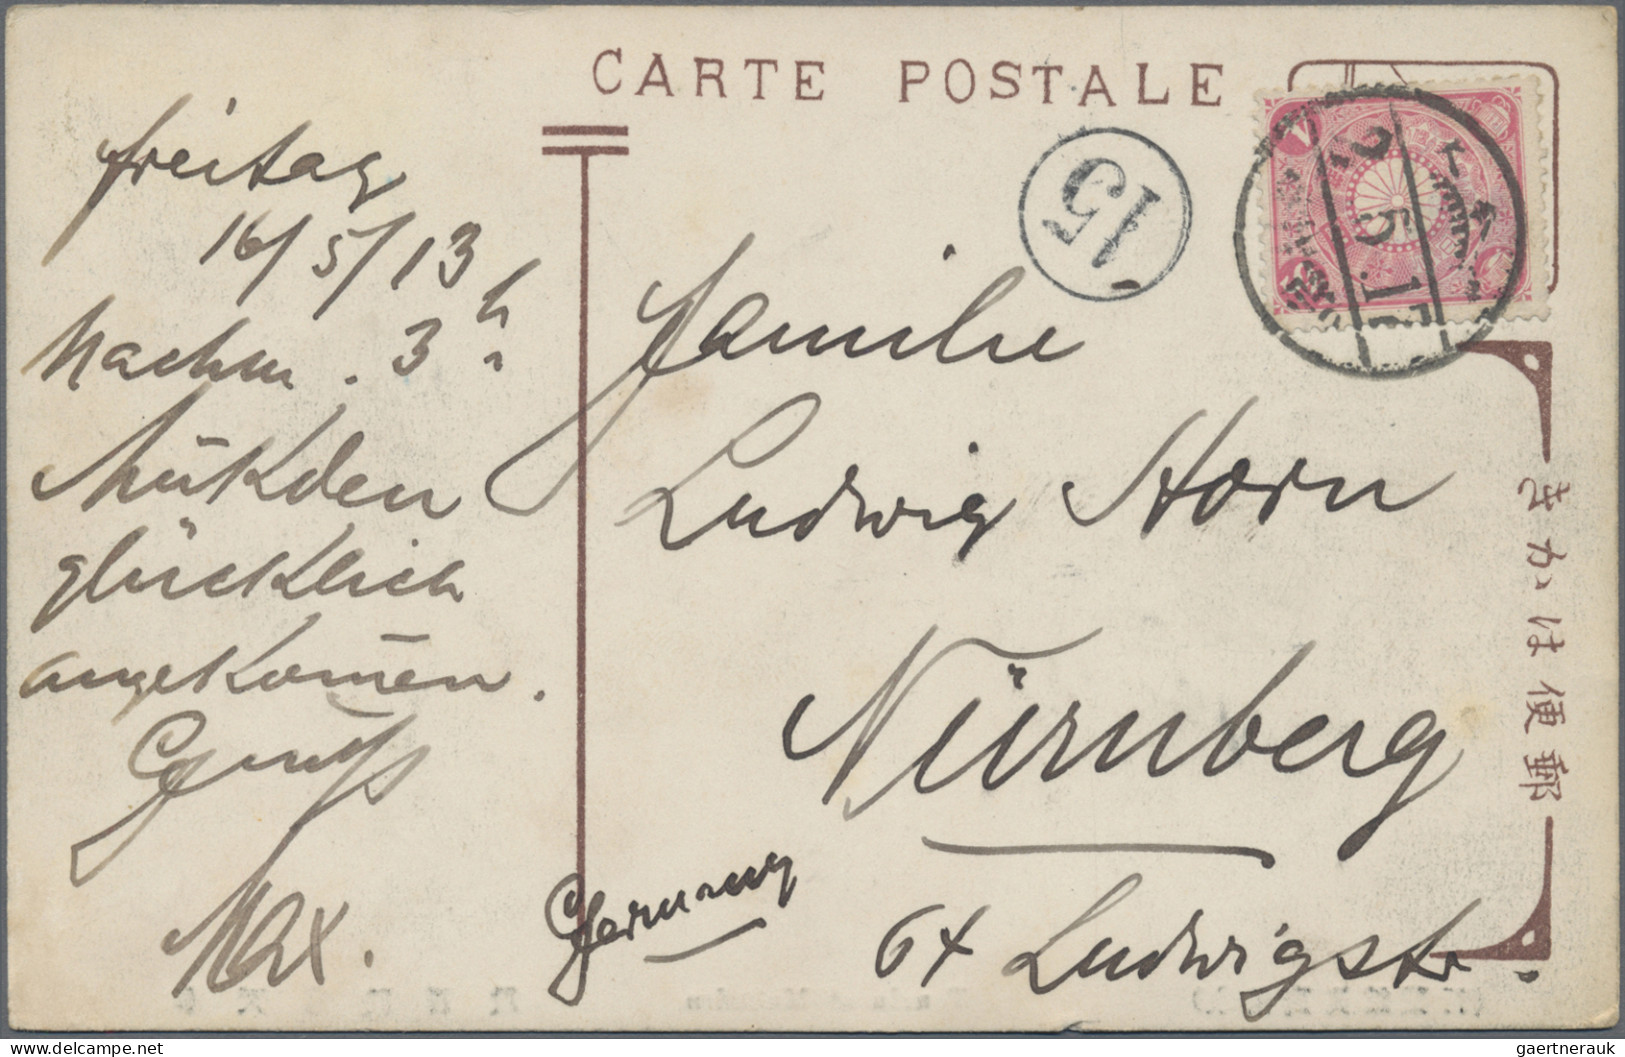 CARTE POSTALE
freitag
16/5/13
Nachm. 3 h
Mūkden
glücklich
angekom̄en.
Gruß
Max.
15
Familie
Ludwig Horn
Nürnberg
64 Ludwigstr.
Germany
郵便はかき
delcampe.net
gaertnerauk